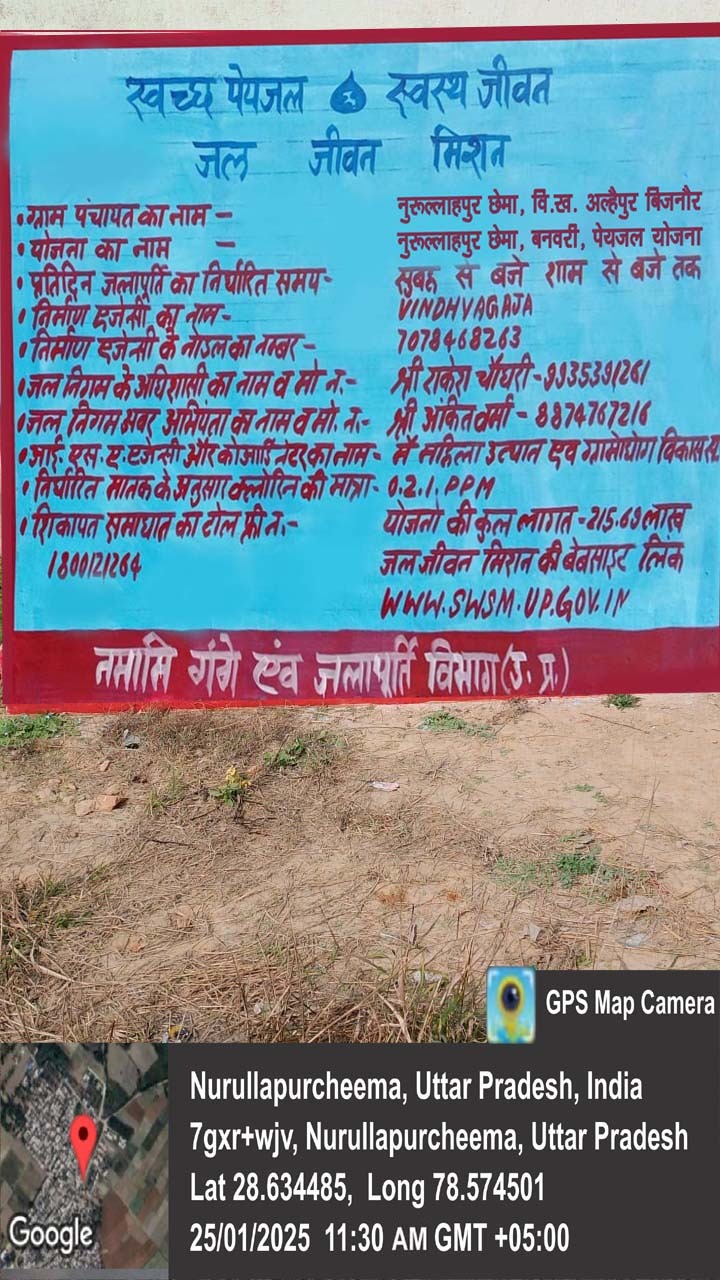 स्वच्छ पेयजल स्वस्थ जीवन
जल जीवन मिशन
• ग्राम पंचायत का नाम – नुरूल्लाहपुर छेमा, वि.ख. अल्हैपुर बिजनौर
• योजना का नाम – नुरूल्लाहपुर छेमा, बनवरी, पेयजल योजना
• प्रतिदिन जलापूर्ति का निर्धारित समय- सुबह से बजे शाम से बजे तक
• निर्माण एजेंसी का नाम- VINDHYAGAJA
• निर्माण एजेन्सी के नोडल का नम्बर- 7078468263
• जल निगम के अधिशासी का नाम व मो न.- श्री राकेश चौधरी -9935391261
• जल निगम अबर अभियंता का नाम व मो. न.- श्री अंकित वर्मा - 8874767216
• आई. एस. ए. एजेन्सी और कोआर्डिनेटर का नाम- मै महिला उत्थान एव ग्रामोद्योग विकास स.
• निर्धारित मानक के अनुसार क्लोरिन की मात्रा- 0.2.1. PPM
• शिकायत समाधान का टोल फ्री न.- योजना की कुल लागत -215.69 लाख
1800121264 जल जीवन मिशन की बेबसाइट लिंक
WWW.SWSM.UP.GOV.IN
नमामि गंगे एंव जलापूर्ति विभाग (उ. प्र.)
GPS Map Camera
Nurullapurcheema, Uttar Pradesh, India
7gxr+wjv, Nurullapurcheema, Uttar Pradesh
Lat 28.634485, Long 78.574501
25/01/2025 11:30 AM GMT +05:00
Google